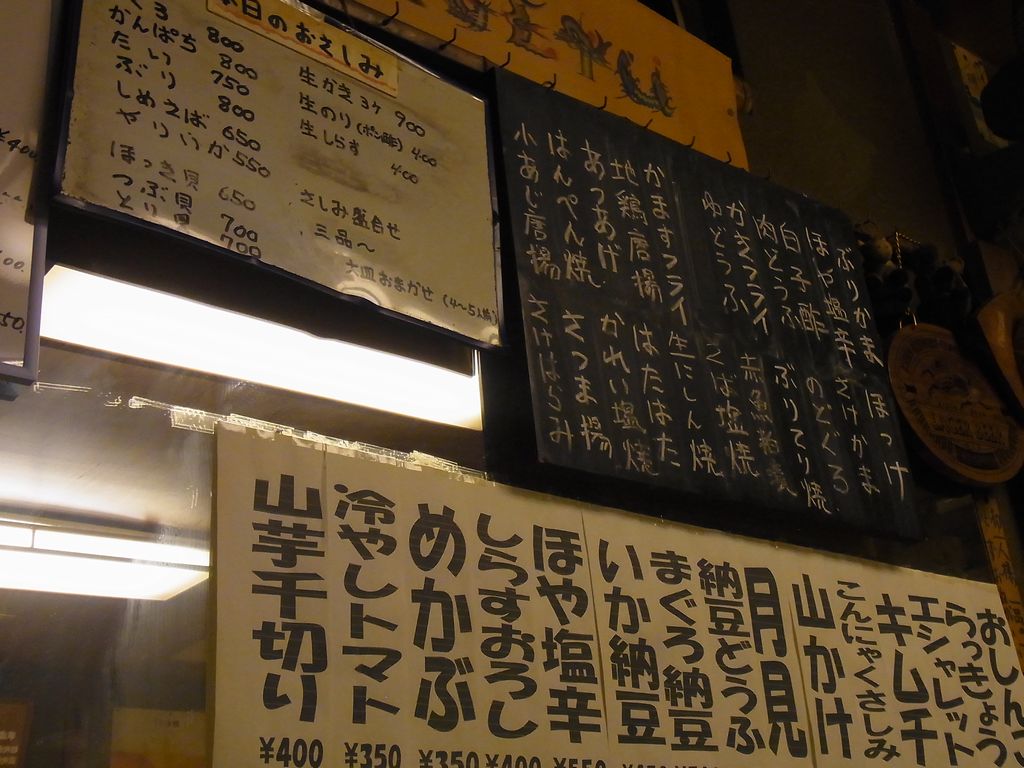 本日のおさしみ
かんぱち 800
たい 800
ぶり 750
しめさば 800
やりいか 650
550
ほっき貝 650
つぶ貝 700
とり貝 700
生かき 3ケ 900
生のり(ポン酢) 400
生しらす 400
さしみ盛合せ
三品〜
大皿おまかせ(4〜5人前)
ぶりかま ほっけ
ほや塩辛 さけかま
白子酢 のどくろ
肉どうふ ぶりてり焼
かきフライ 赤魚粕漬
ゆどうふ さば塩焼
かますフライ 生にしん焼
地鶏唐揚 はたはた
あつあげ かれい塩焼
はんぺん焼 さつま揚
小あじ唐揚 さけはらみ
おしんこ
らっきょう
エシャレット
キムチ
こんにゃくさしみ
山かけ
月見
納豆どうふ
まぐろ納豆
いか納豆
ほや塩辛 ¥550
しらすおろし ¥400
めかぶ ¥350
冷やしトマト ¥350
山芋千切り ¥400